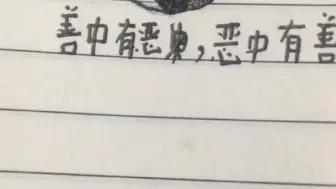 善中有恶,恶中有善